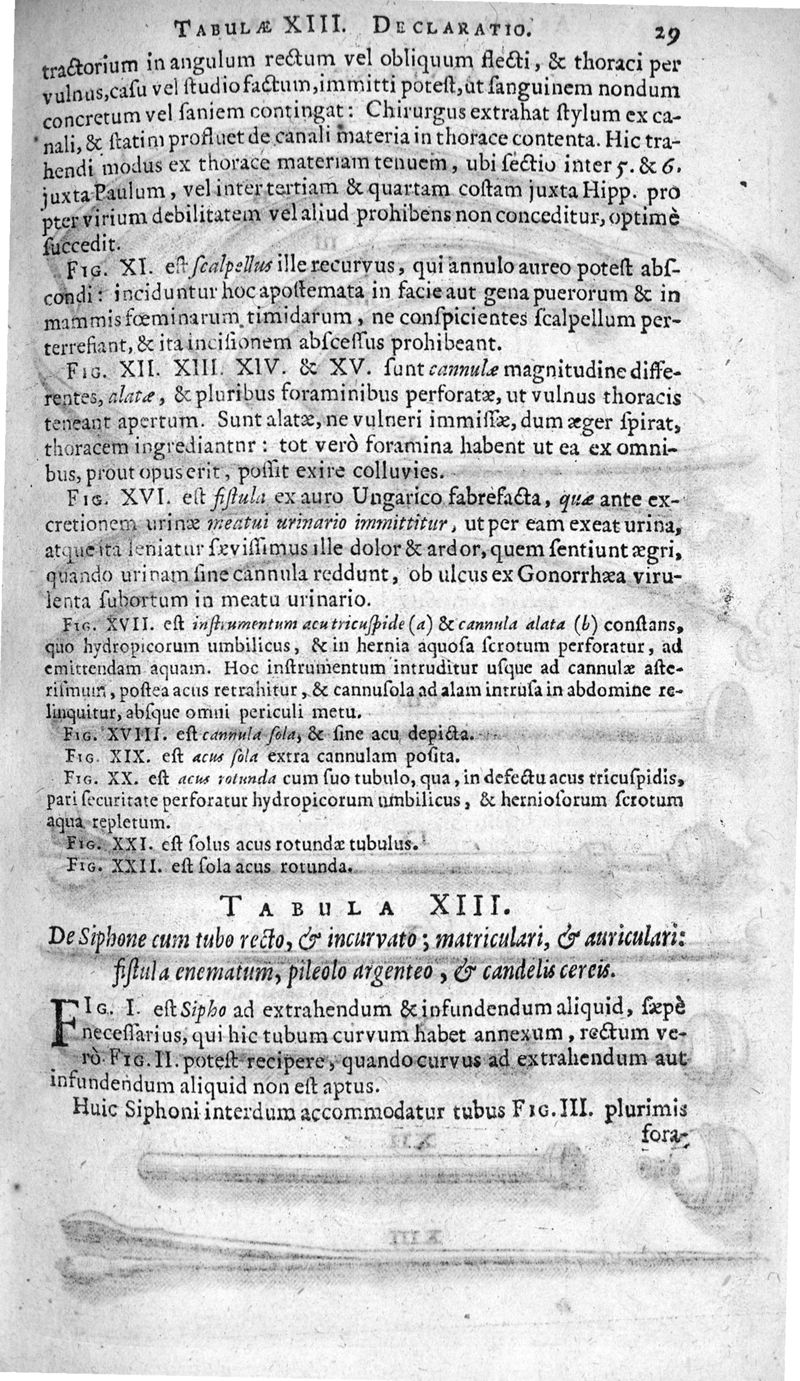 TABULÆ XIII. DECLARATIO. 29
tractorium in angulum rectum vel obliquum flecti, & thoraci per
vulnus, casu vel studio factum, immitti potest, ut sanguinem nondum
concretum vel saniem contingat: Chirurgus extrahat stylum ex ca-
nali, & statim profluet de canali materia in thorace contenta. Hic tra-
hendi modus ex thorace materiam tenuem, ubi sectio inter 5. & 6.
juxta Paulum, vel inter tertiam & quartam costam juxta Hipp. pro
pter virium debilitatem vel aliud prohibens non conceditur, optimè
succedit.
FIG. XI. est scalpellus ille recurvus, qui annulo aureo potest abs-
condi: inciduntur hoc apostemata in facie aut gena puerorum & in
mammis fœminarum timidarum, ne conspicientes scalpellum per-
terrefiant, & ita incisionem abscessus prohibeant.
FIG. XII. XIII. XIV. & XV. sunt cannulæ magnitudine diffe-
rentes, alatæ, & pluribus foraminibus perforatæ, ut vulnus thoracis
teneant apertum. Sunt alatæ, ne vulneri immissæ, dum æger spirat,
thoracem ingrediantnr: tot verò foramina habent ut ea ex omni-
bus, prout opus erit, possit exire colluvies.
FIG. XVI. est fistula ex auro Ungarico fabrefacta, quæ ante ex-
cretionem urinæ meatui urinario immittitur, ut per eam exeat urina,
atque ita leniatur sævissimus ille dolor & ardor, quem sentiunt ægri,
quando urinam sine cannula reddunt, ob ulcus ex Gonorrhæa viru-
lenta subortum in meatu urinario.
FIG. XVII. est instrumentum acu tricuspide (a) & cannula alata (b) constans,
quo hydropicorum umbilicus, & in hernia aquosa scrotum perforatur, ad
emittendam aquam. Hoc instrumentum intruditur usque ad cannulæ aste-
rismum, postea acus retrahitur, & cannusola ad alam intrusa in abdomine re-
linquitur, absque omni periculi metu.
FIG. XVIII. est cannula sola, & sine acu depicta.
FIG. XIX. est acus sola extra cannulam posita.
FIG. XX. est acus rotunda cum suo tubulo, qua, in defectu acus tricuspidis,
pari securitate perforatur hydropicorum umbilicus, & herniosorum scrotum
aqua repletum.
FIG. XXI. est solus acus rotundæ tubulus.
FIG. XXII. est sola acus rotunda.
TABULA XIII.
De Siphone cum tubo recto, & incurvato; matriculari, & auriculari:
fistula enematum, pileolo argenteo, & candelis cereis.
FIG. I. est Sipho ad extrahendum & infundendum aliquid, sæpè
necessarius, qui hic tubum curvum habet annexum, rectum ve-
rò FIG. II. potest recipere, quando curvus ad extrahendum aut
infundendum aliquid non est aptus.
Huic Siphoni interdum accommodatur tubus FIG. III. plurimis
fora-